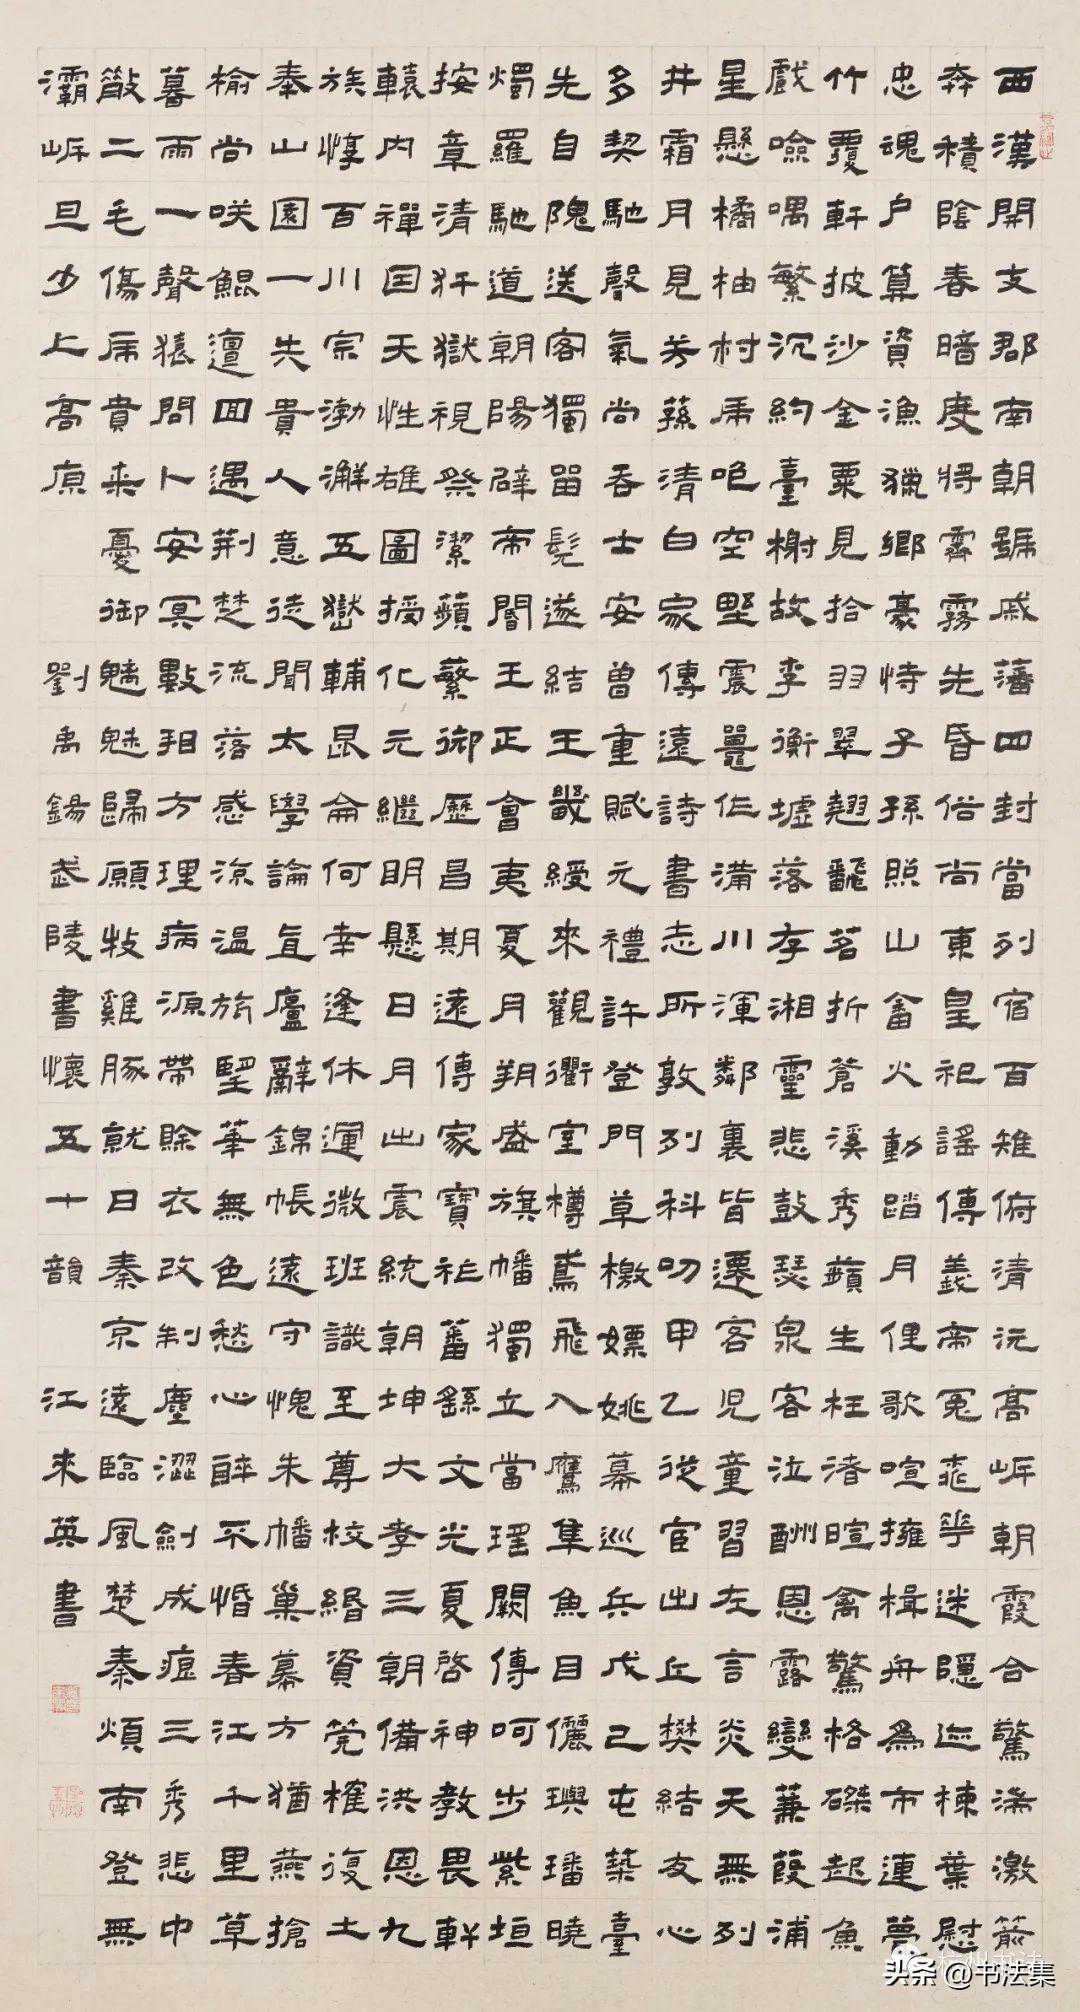 西漢開支郡南朝號戚藩四封當列宿百雉俯清沅高岸朝霞合驚湍激箭
奔積陰春暗度將霽霧先昏俗尚東皇祀謠傳義帝冤桃花迷隱迹楝葉慰
忠魂戶算資漁獵鄉豪恃子孫照山畬火動踏月俚歌喧擁楫舟為市連甍
竹覆軒披沙金粟見拾羽翠翹翻茗折蒼溪秀蘋生枉渚暄禽驚格磔起魚
戲噞喁繁沉約臺榭故李衡墟落存湘靈悲鼓瑟泉客泣酬恩露變蒹葭浦
星懸橘柚村虎咆空野震鼉作滿川渾鄰裏皆遷客兒童習左言炎天無冽
井霜月見芳蓀清白家傳遠詩書志所敦列科叨甲乙從宦出丘樊結友心
多契馳聲氣尚吞士安曾重賦元禮許登門草檄嫖姚幕巡兵戊己屯築臺
先自隗送客獨留髡遂結王畿綬來觀衢室樽鳶飛入鷹隼魚目儷璵璠曉
燭羅馳道朝陽闢帝閽王正會夷夏月朔盛旗幡獨立當瑤闕傳呵步紫垣
按章清犴獄視祭潔蘋蘩御歷昌期遠傳家寶祚蕃繇文光夏啓神教畏軒
轅內禪因天性雄圖授化元繼明懸日月出震統朝坤大孝三朝備洪恩九
族惇百川宗渤澥五嶽輔昆侖何幸逢休運微班識至尊校緡資筦榷復土
奉山園一失貴人意徒聞太學論直廬辭錦帳遠守愧朱幡巢幕方猶燕搶
榆尚咲鯤邅回遇荊楚流落感涼溫旅望華無色愁心醉不惛春江千里草
暮雨一聲猿問卜安冥數看方理病源帶賒衣改制塵澀劍成痕三秀悲中
散二毛傷虎賁來憂御魑魅歸願牧雞豚就日秦京遠臨風楚奏煩南登無
灞岸旦夕上高原
劉禹錫武陵書懷五十韻
江來英書
头条 @书法集